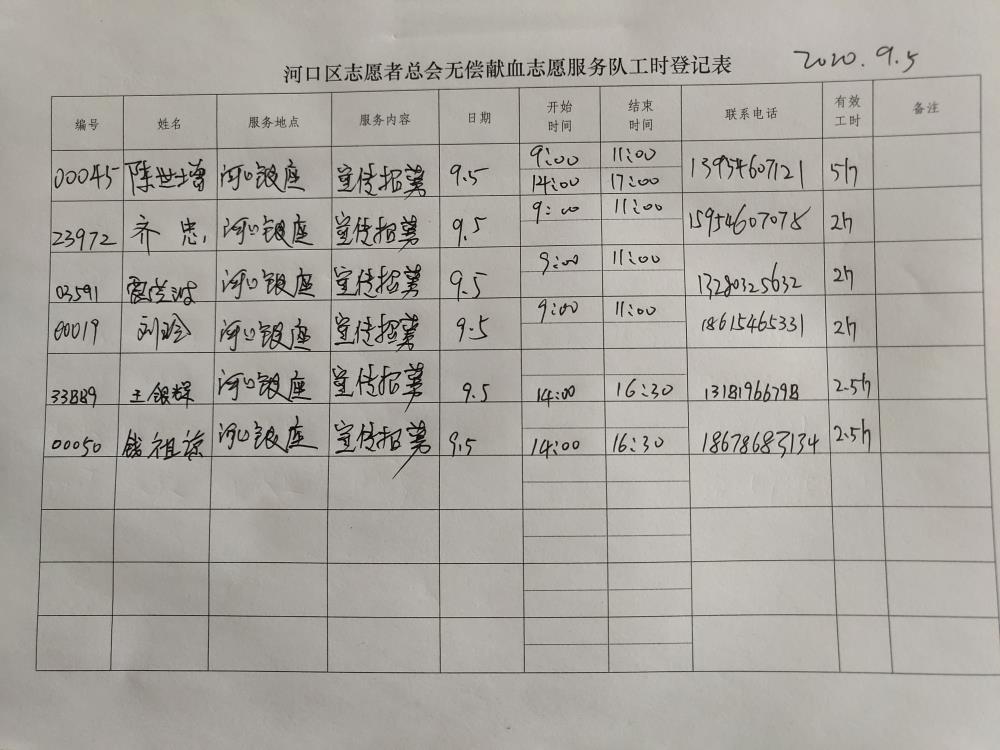 河口区志愿者总会无偿献血志愿服务队工时登记表 2020.9.5
编号 姓名 服务地点 服务内容 日期 开始时间 结束时间 联系电话 有效工时 备注
00045 陈世增 河口银座 宣传招募 9.5 9:00 11:00 13954607121 5h
14:00 17:00
23972 齐忠 河口银座 宣传招募 9.5 9:00 11:00 15954607078 2h
03591 河口银座 宣传招募 9.5 9:00 11:00 13280325632 2h
00019 刘玲 河口银座 宣传招募 9.5 9:00 11:00 18615465331 2h
33889 王银辉 河口银座 宣传招募 9.5 14:00 16:30 13181966798 2.5h
00050 河口银座 宣传招募 9.5 14:00 16:30 18678683134 2.5h